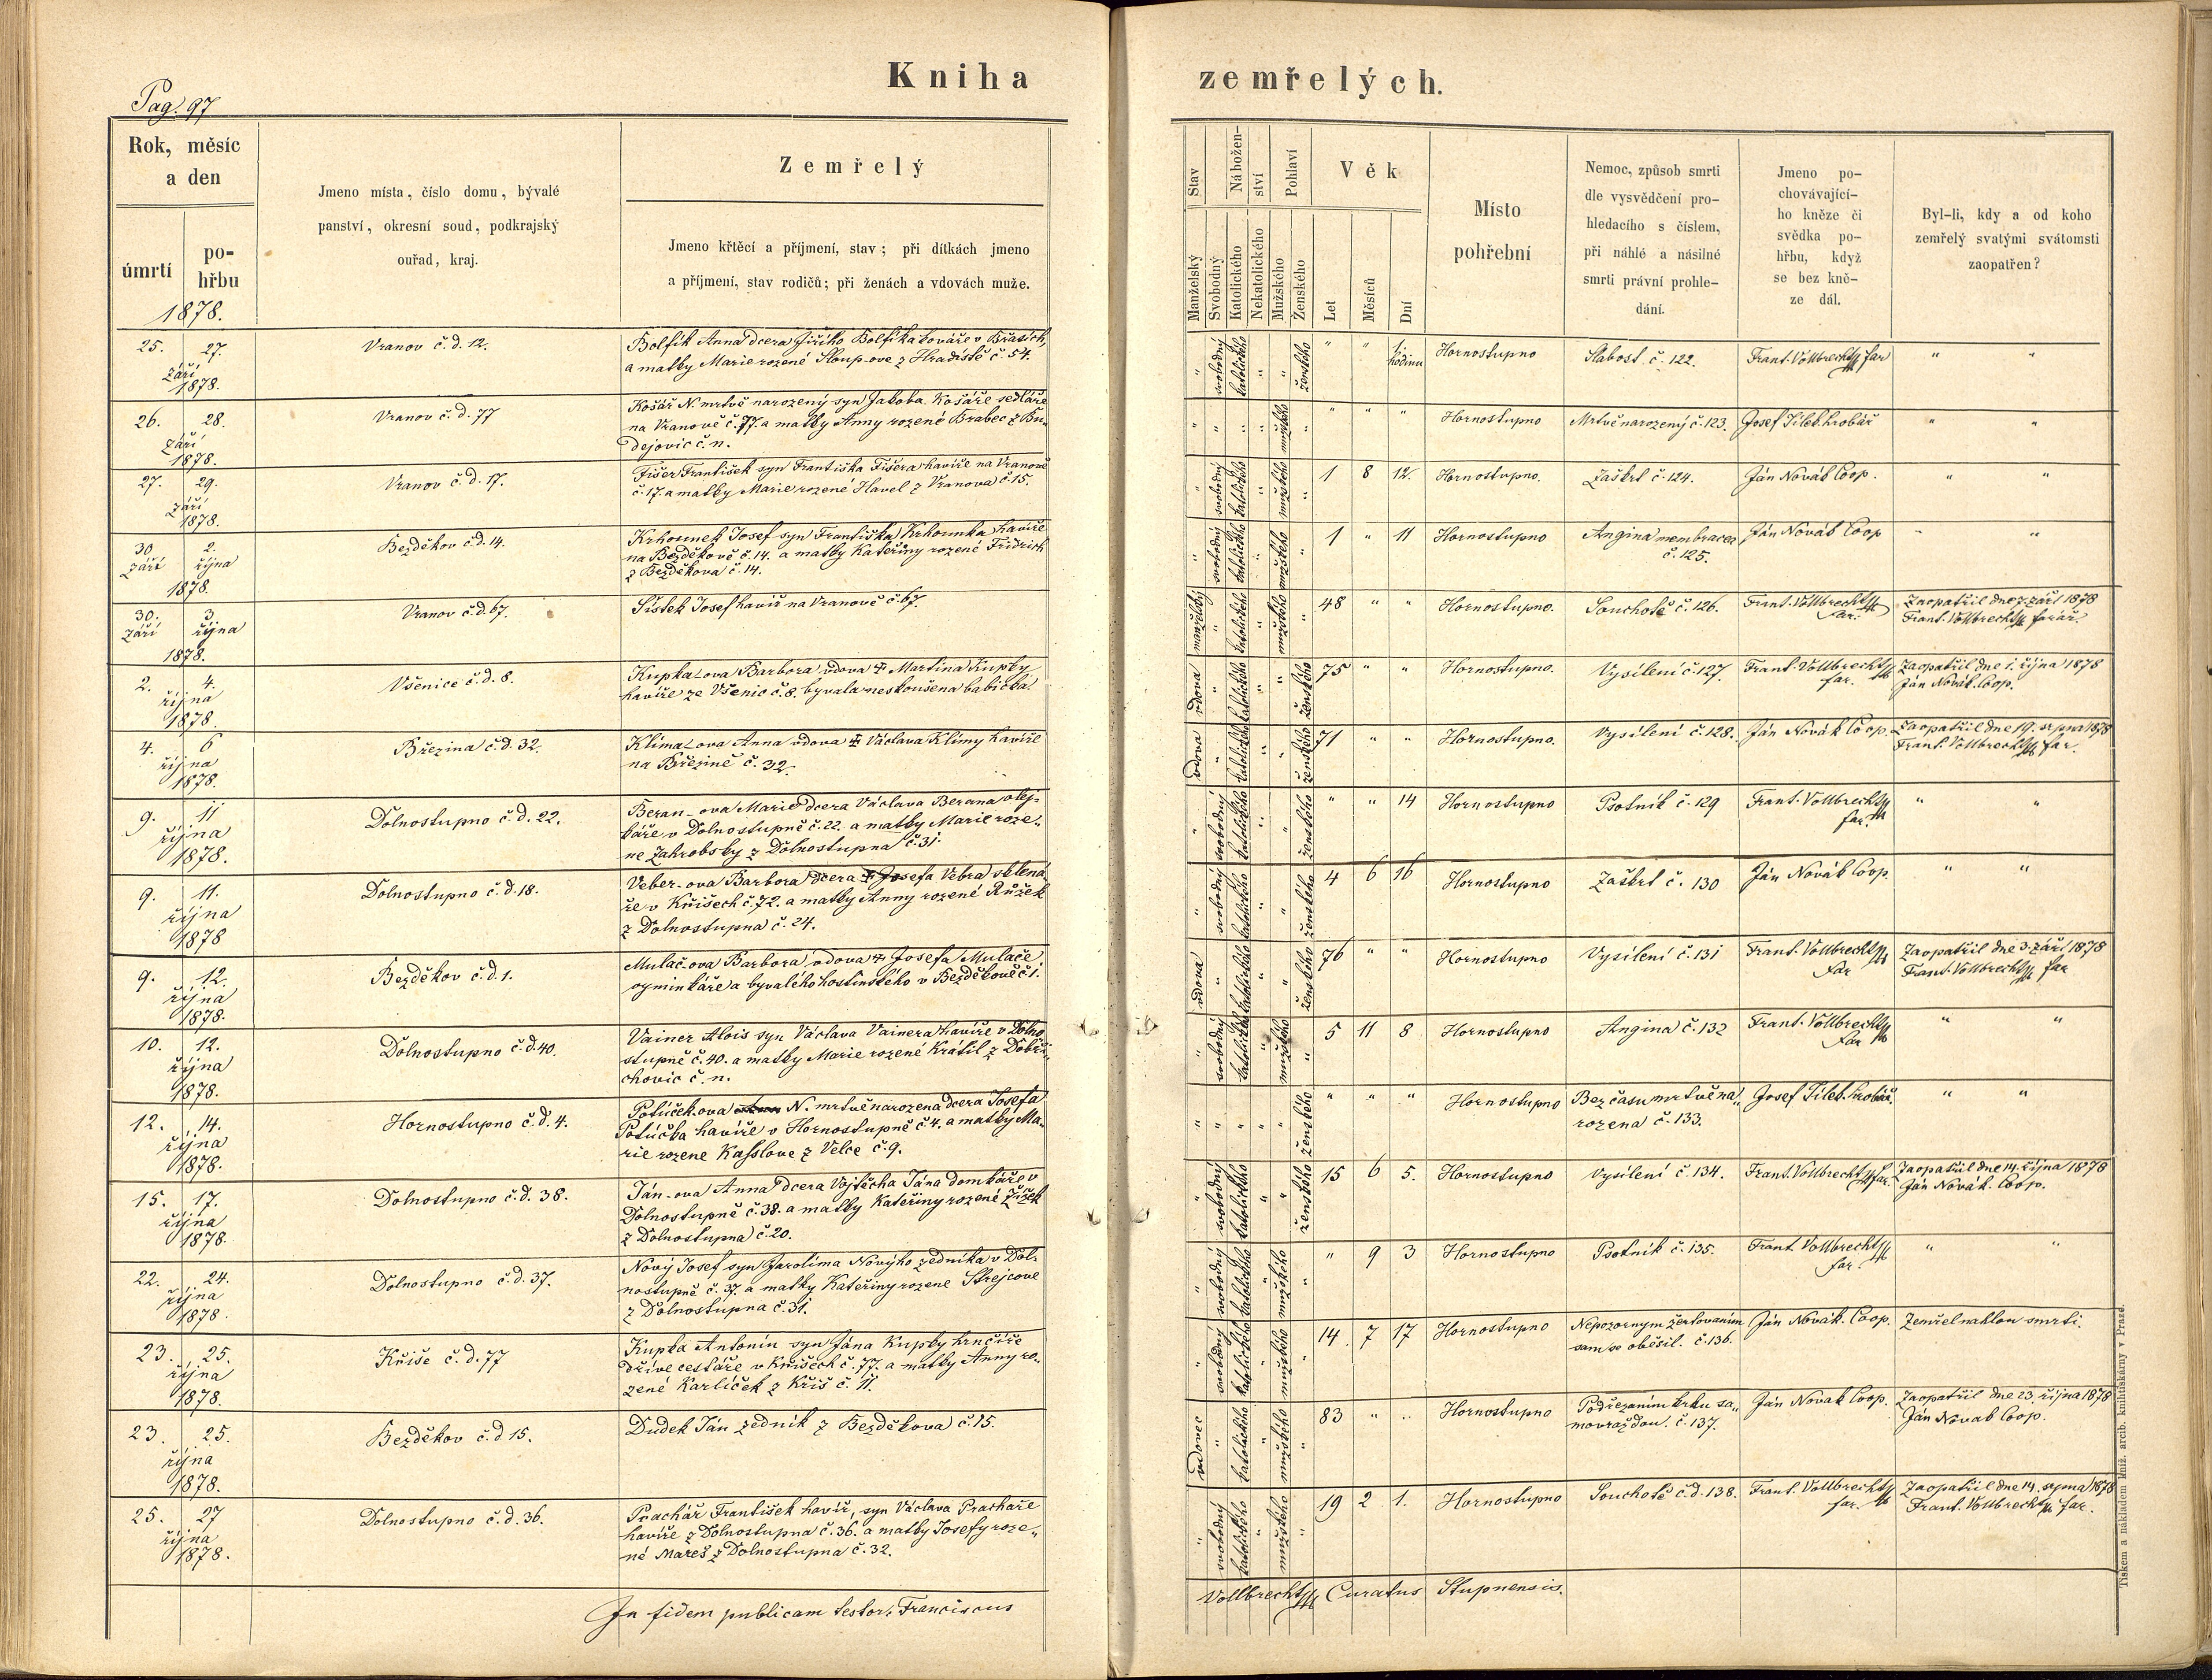 Kniha
Pag. 97
Rok, měsíc
a den
úmrtí
po-
hřbu
1878.
Jmeno místa, číslo domu, bývalé
panství, okresní soud, podkrajský
ouřad, kraj.
Zemřelý
Jmeno křtěcí a příjmení, stav; při dítkách jmeno
a příjmení, stav rodičů; při ženách a vdovách muže.
25. 27.
září
1878.
Vranov č.d. 12.
Bolfík Anna dcera Jiřího Bolfíka kováře v Břasích,
a matky Marie rozené Sloup-ove z Hradiště č. 54.
26. 28.
září
1878.
Vranov č.d. 77
Košář N. mrtvě narozený syn Jakoba Košáře sedláře
na Vranově č. 77. a matky Anny rozené Brabec z Bu-
dejovic č. n.
27. 29.
září
1878.
Vranov č.d. 17.
Fišer František syn Františka Fišera havíře na Vranově
č. 17. a matky Marie rozené Havel z Vranova č. 15.
30 2.
září října
1878.
Bezděkov č.d. 14.
Krhounek Josef syn Františka Krhounka havíře
na Bezděkově č. 14. a matky Kateřiny rozené Fridrich
z Bezděkova č. 14.
30. 3.
září října
1878.
Vranov č.d. 67.
Sístek Josef havíř na Vranově č. 67.
2. 4.
října
1878.
Všenice č.d. 8.
Kupka-ova Barbora vdova ✝ Martina Kupky
havíře ze Všenic č. 8. byvala neskoušena babička.
4. 6
října
1878.
Březina č.d. 32.
Klima-ova Anna vdova ✝ Václava Klimy havíře
na Březině č. 32.
9. 11
října
1878.
Dolnostupno č.d. 22.
Beran-ova Marie dcera Václava Berana olej-
káře v Dolnostupně č. 22. a matky Marie roze-
ne Zahrobsky z Dolnostupna č. 31.
9. 11.
října
1878
Dolnostupno č.d. 18.
Veber-ova Barbora dcera ✝ Josefa Vebra sklená-
ře v Křišech č. 72. a matky Anny rozené Růžek
z Dolnostupna č. 24.
9. 12.
října
1878.
Bezděkov č.d. 1.
Mulač-ova Barbora vdova ✝ Josefa Mulače
vyminkáře a byvalého hostinského v Bezděkově č. 1.
10. 12.
října
1878.
Dolnostupno č.d. 40.
Vainer Alois syn Václava Vainera havíře v Dolno
stupně č. 40. a matky Marie rozené Krátil z Dobři-
chovic č. n.
12. 14.
října
1878.
Hornostupno č.d. 4.
Potůček-ova N. mrtvě narozena dcera Josefa
Potůčka havíře v Hornostupně č. 4. a matky Ma-
rie rozene Kasslove z Velce č. 9.
15. 17.
října
1878.
Dolnostupno č.d. 38.
Ján-ova Anna dcera Vojtěcha Jána domkáře v
Dolnostupně č. 38. a matky Kateřiny rozené Žížek
z Dolnostupna č. 20.
22. 24.
října
1878.
Dolnostupno č.d. 37.
Nový Josef syn Jarolima Nového zedníka v Dol-
nostupně č. 37. a matky Kateřiny rozene Strejcove
z Dolnostupna č. 31.
23. 25.
října
1878.
Kříše č.d. 77
Kupka Antonín syn Jána Kupky hrnčíře
dříve cestáře v Křišech č. 77. a matky Anny ro-
zené Karlíček z Kříš č. 11.
23. 25.
října
1878.
Bezděkov č.d 15.
Dudek Ján zedník z Bezděkova č. 15.
25. 27
října
1878.
Dolnostupno č.d. 36.
Prachář František havíř, syn Václava Prachaře
havíře z Dolnostupna č. 36. a matky Josefy roze-
né Mareš z Dolnostupna č. 32.
In fidem publicam testor. Franciscus
zemřelých.
Stav
Nábožen-
ství
Pohlaví
Věk
Manželský
Svobodný
Katolického
Nekatolického
Mužského
Ženského
Let
Měsíců
Dní
Místo
pohřební
Nemoc, způsob smrti
dle vysvědčení pro-
hledacího s číslem,
při náhlé a násilné
smrti právní prohle-
dání.
Jmeno po-
chovávající-
ho kněze či
svědka po-
hřbu, když
se bez kně-
ze dál.
Byl-li, kdy a od koho
zemřelý svatými svátomsti
zaopatřen?
" svobodný katolického " " ženského " " 1. hodinu Hornostupno Slabost č. 122. Frant. Vollbrecht far " "
" " " " mužského " " " " Hornostupno Mrtvě narozený č. 123. Josef Sileb. hrobář " "
" svobodný katolického " mužského " 1 8 12. Hornostupno. Záškrt č. 124. Ján Novák Coop. " "
" svobodný katolického " mužského " 1 " 11 Hornostupno Angina membracea Ján Novák Coop " "
č. 125.
manželský " katolického " mužského " 48 " " Hornostupno. Souchotě č. 126. Frant. Vollbrecht Zaopatřil dne 7. září 1878
far. Frant. Vollbrecht farář.
vdova " katolického " " ženského 75 " " Hornostupno. Vysílení č. 127. Frant. Vollbrecht Zaopatřil dne 1. října 1878
far. Ján Novák. Coop.
vdova " katolického " " ženského 71 " " Hornostupno. Vysílení č. 128. Ján Novák Coop. Zaopatřil dne 19. srpna 1878
Frant. Vollbrecht far.
" svobodný katolického " " ženského " " 14 Hornostupno Psotník č. 129 Frant. Vollbrecht " "
far.
" svobodný katolického " " ženského 4 6 16 Hornostupno Záškrt č. 130 Ján Novák Coop. " "
vdova " katolického " " ženského 76 " " Hornostupno Vysílení č. 131 Frant. Vollbrecht Zaopatřil dne 3. září 1878
far Frant. Vollbrecht far
" svobodný katolického " mužského " 5 11 8 Hornostupno Angina č. 132 Frant. Vollbrecht " "
far
" " " " " ženského " " " Hornostupno Bez času mrtvě na- Josef Sileb. hrobář. " "
rozena č. 133.
" svobodný katolického " " ženského 15 6 5. Hornostupno Vysílení č. 134. Frant. Vollbrecht far. Zaopatřil dne 14. října 1878
Ján Novák. Coop.
" svobodný katolického " mužského " " 9 3 Hornostupno Psotník č. 135. Frant Vollbrecht " "
far.
" svobodný katolického " mužského " 14. 7 17 Hornostupno Nepozorným žertovaním Ján Novák. Coop. Zemřel naklou smrtí.
sam se oběsil. č. 136.
vdovec " katolického " mužského " 83 " " Hornostupno Podřezaním krku sa- Ján Novak Coop. Zaopatřil dne 23. října 1878
movraždou. č. 137. Ján Novak Coop.
" svobodný katolického " mužského " 19 2 1. Hornostupno Souchotě č.d. 138. Frant. Vollbrecht Zaopatřil dne 14. srpna 1878
far. Frant. Vollbrecht far.
Vollbrecht Curatus Stupnensis.
Tiskem a nákladem kníž. arcib. knihtiskárny v Praze.